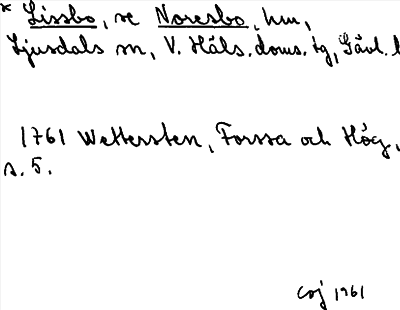 * Lissbo, se Noresbo, hm,
Ljusdals sn, V. Häls. doms. tg, Gävl. l
1761 Wettersten, Forssa och Hög,
s. 5.
CGJ 1961